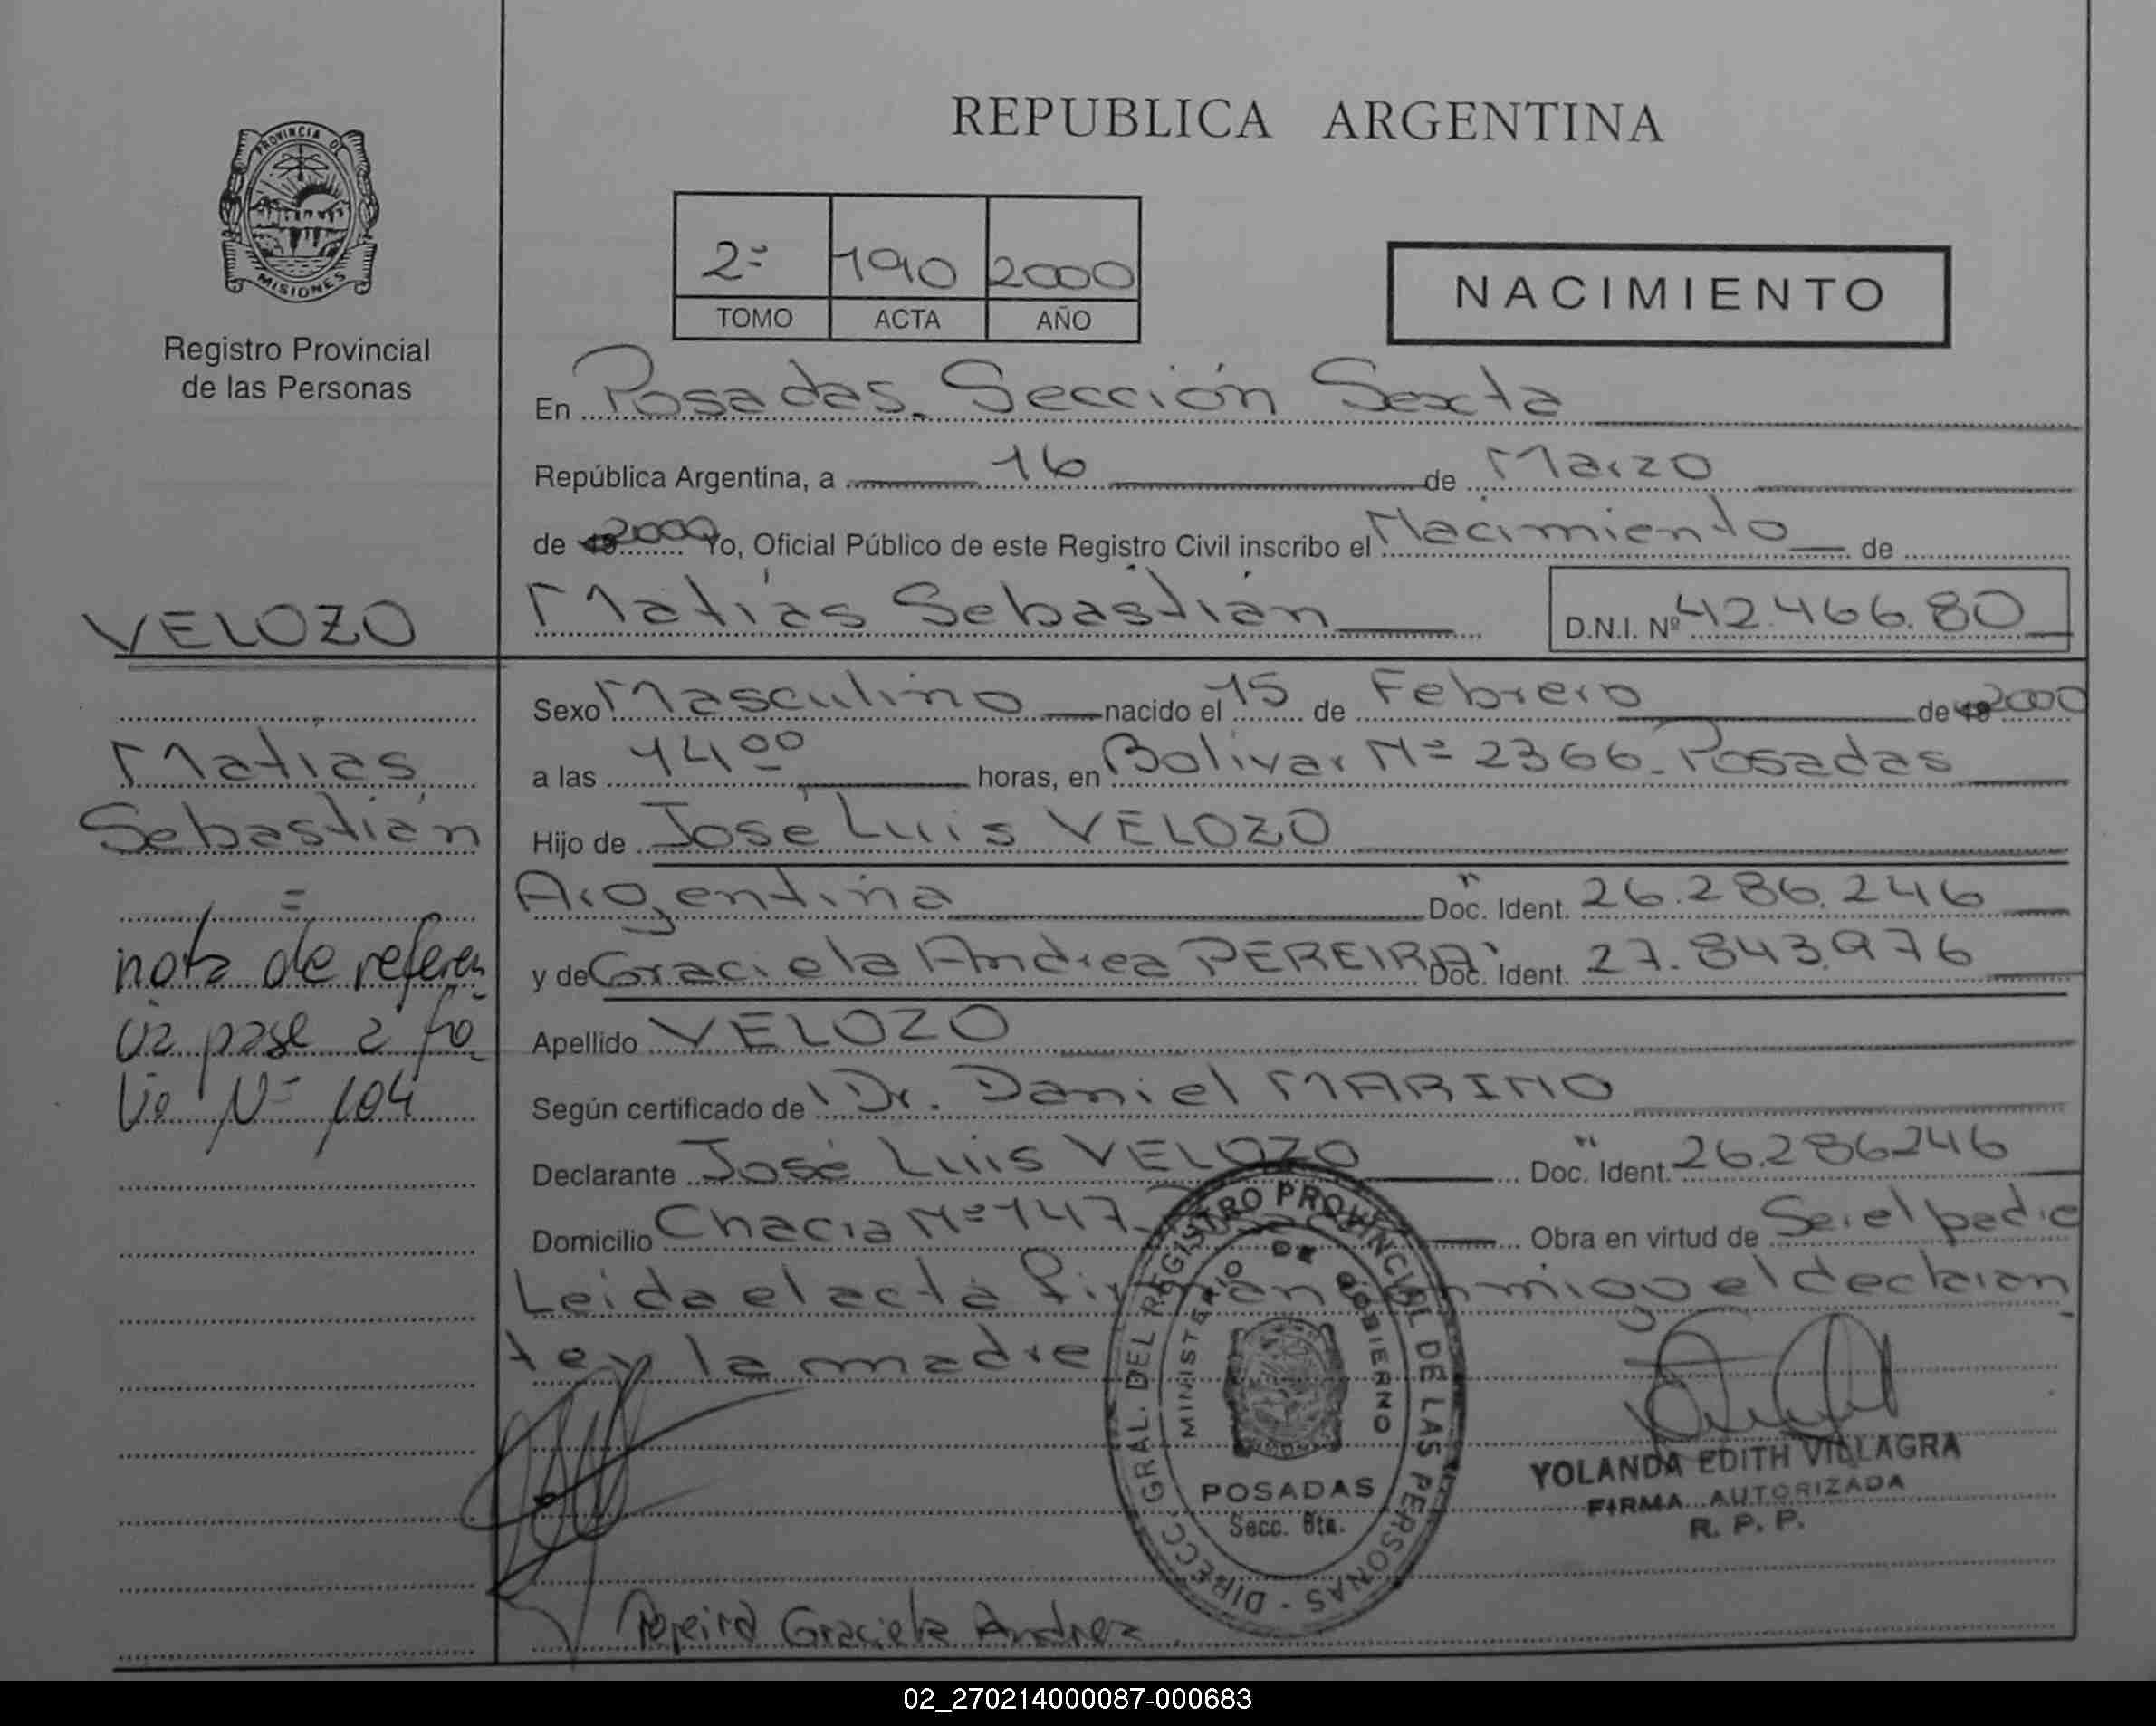 REPUBLICA ARGENTINA
PROVINCIA DE
MISIONES
Registro Provincial
de las Personas
2º 190 2000
TOMO ACTA AÑO
NACIMIENTO
En Posadas. Sección Sexta
República Argentina, a 16 de Marzo
de 19 2000 Yo, Oficial Público de este Registro Civil inscribo el Nacimiento de
Matías Sebastián D.N.I. Nº 42.466.80
Sexo Masculino nacido el 15 de Febrero de 19 2000
a las 14 00 horas, en Bolivar Nº 2366_ Posadas
Hijo de José Luis VELOZO
Argentina Doc. Ident. 26.286.246
y de Graciela Andrea PEREIRA Doc. Ident. 27.843.976
Apellido VELOZO
Según certificado de Dr. Daniel MARINO
Declarante José Luis VELOZO Doc. Ident. 26.286246
Domicilio Nº 147 Obra en virtud de Ser el padre
Leida el acta firman conmigo el declaran
te y la madre
VELOZO
Matías
Sebastián
=
nota de referen
cia pase a fo
lio Nº 104
DIRECC. GRAL. DEL REGISTRO PROVINCIAL DE LAS PERSONAS -
MINISTERIO DE GOBIERNO
POSADAS
Secc. 6ta.
YOLANDA EDITH VILLAGRA
FIRMA AUTORIZADA
R. P. P.
Pereira Graciela Andrea
02_270214000087-000683